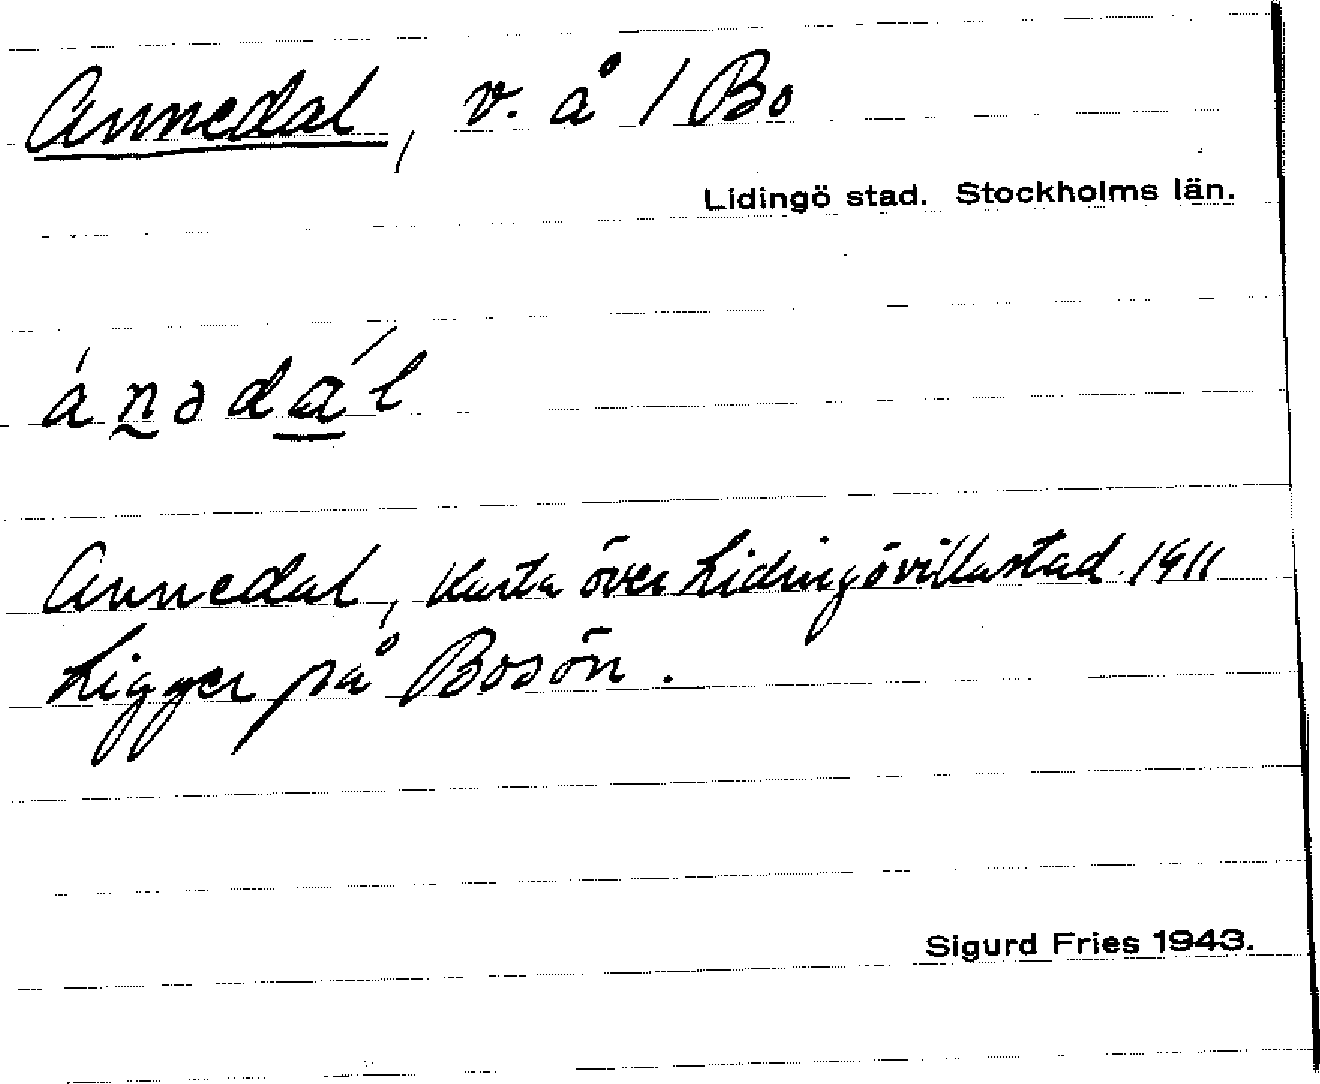 Annedal, v. å / Bo
Lidingö stad. Stockholms län.
ánədál
Annedal, Karta över Lidingövillastad 1911
Ligger på Bosön.
Sigurd Fries 1943.